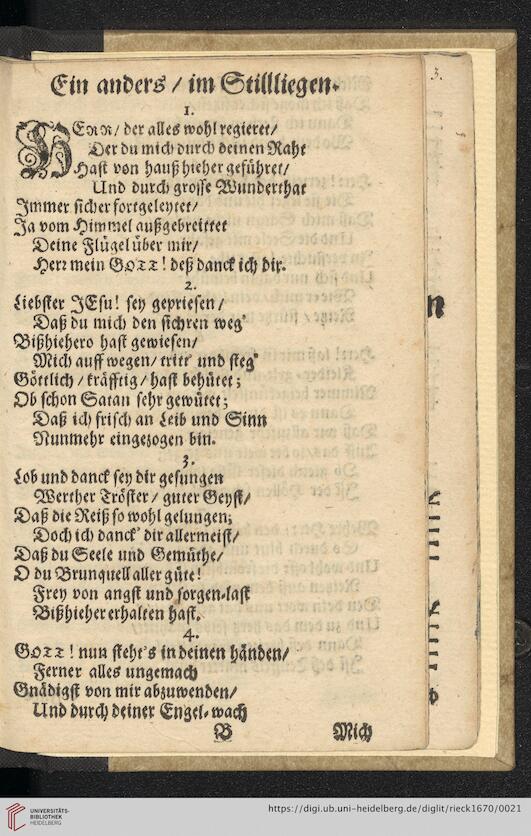 Ein anders / im Stillliegen.
1.
HErr / der alles wohl regieret /
Der du mich durch deinen Raht
Hast von hauß hieher geführet /
Und durch grosse Wunderthat
Immer sicher fortgeleytet /
Ja vom Himmel außgebreittet
Deine Flügel über mir /
Herr mein GOTT ! deß danck ich dir.
2.
Liebster JEsu ! sey gepriesen /
Daß du mich den sichren weg'
Bißhiehero hast gewiesen /
Mich auff wegen / tritt' und steg'
Göttlich / kräfftig / hast behütet ;
Ob schon Satan sehr gewütet ;
Daß ich frisch an Leib und Sinn
Nunmehr eingezogen bin.
3.
Lob und danck sey dir gesungen
Werther Tröster / guter Geyst /
Daß die Reiß so wohl gelungen ;
Doch ich danck' dir allermeist /
Daß du Seele und Gemüthe /
O du Brunquell aller güte !
Frey von angst und sorgen-last
Bißhieher erhalten hast.
4.
GOTT ! nun steht's in deinen händen /
Ferner alles ungemach
Gnädigst von mir abzuwenden /
Und durch deiner Engel-wach
B Mich
3.
n
UNIVERSITÄTS-
BIBLIOTHEK
HEIDELBERG
https://digi.ub.uni-heidelberg.de/diglit/rieck1670/0021